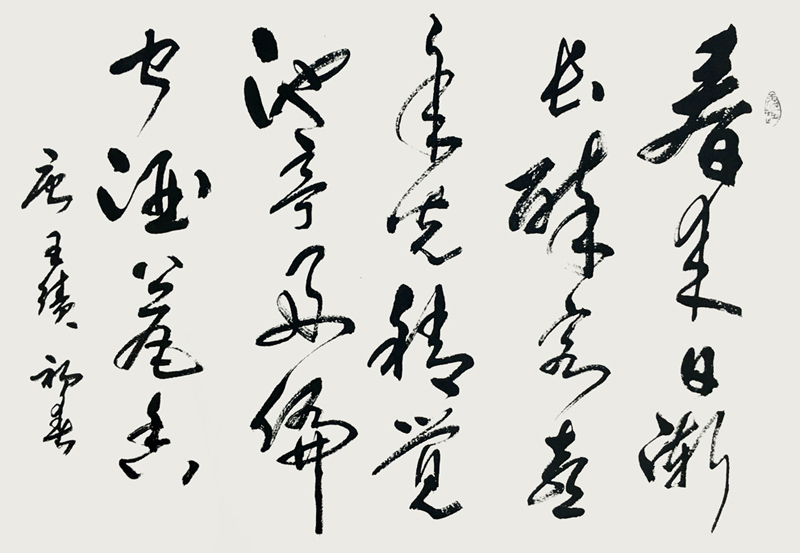 春来日渐
长醉客喜
年光稍觉
池亭好偏
闻酒瓮香
唐王绩、初春